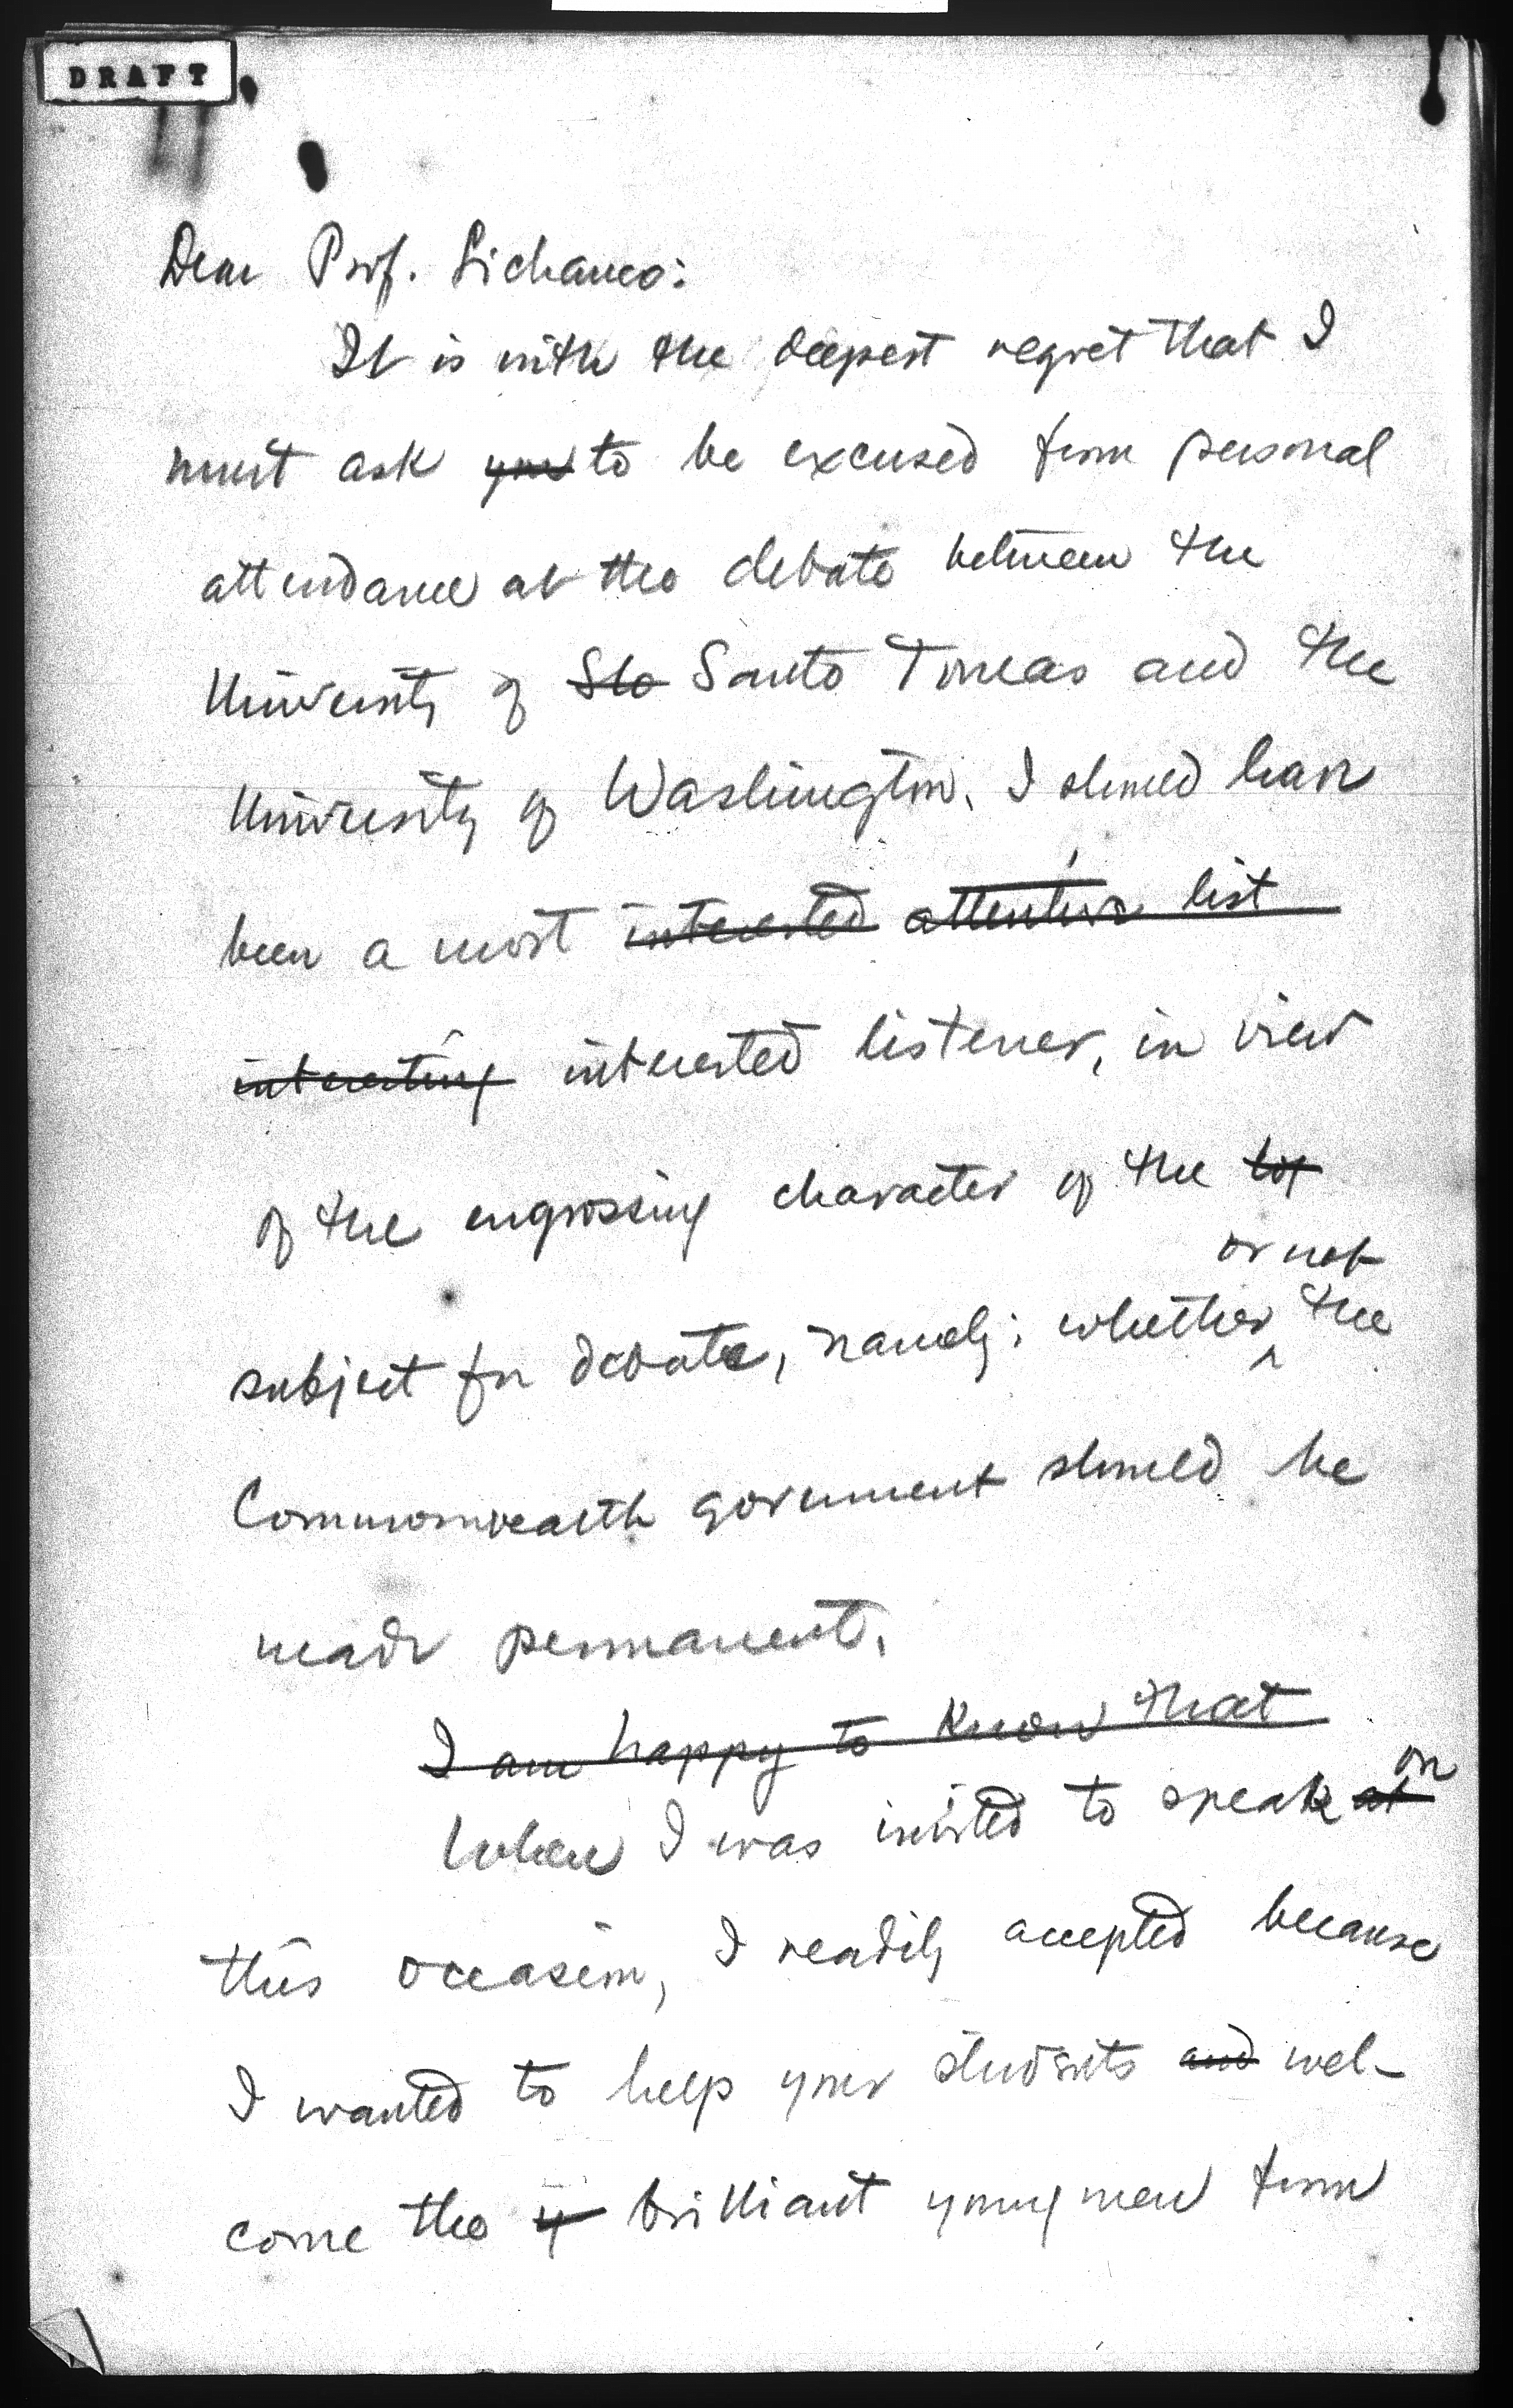 DRAFT
Dear Prof. Lichauco:
It is with the deepest regret that I
must ask you to be excused from personal
attendance at the debate between the
University of Sto Santo Tomas and the
University of Washington. I should have
been a most interested attentive list
interesting interested listener, in view
of the engrossing character of the
or not
subject for debate, namely: whether ^ the
Commonwealth government should be
made permanent.
I am happy to know that
on
When I was invited to speak at
this occasion, I readily accepted because
I wanted to help your students and wel-
come the y brilliant young men from